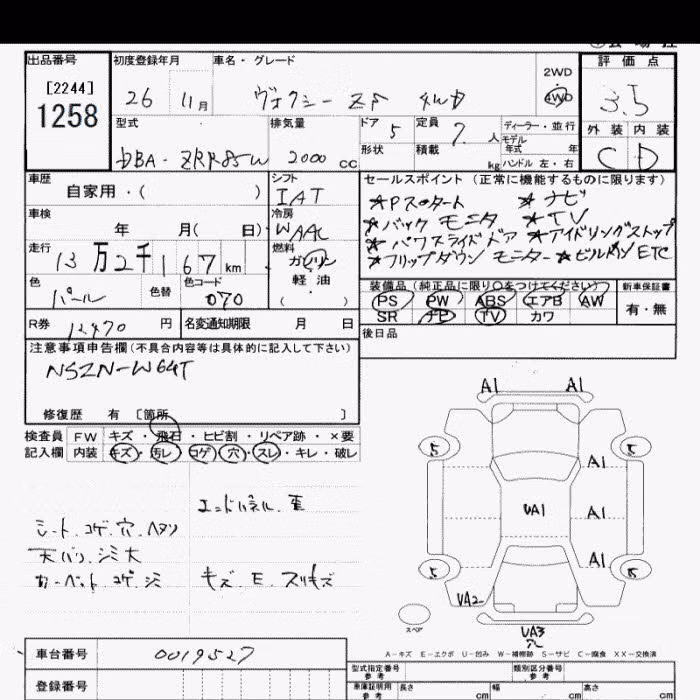 出品番号
[2244]
1258
初度登録年月
26 11 月
車名・グレード
ヴォクシー ZS 4WD
2WD
4WD
評価点
3.5
外装 内装
C D
型式
DBA-ZRR85W
排気量
2000 cc
ドア 5
形状
定員 7 人
積載 kg
ディーラー・並行
モデル
年式 年
ハンドル 左・右
車歴
自家用・( )
シフト
IAT
車検
年 月( 日)
冷房
WAAC
走行
13万2千167km
燃料
ガソリン
軽油
・( )
色
パール
色替
色コード
070
R券 12470 円
名変通知期限 月 日
セールスポイント (正常に機能するものに限ります)
★Pスタート ★ナビ
★バックモニタ ★TV
★パワスライドドア ★アイドリングストップ
★フリップダウンモニター ★ビルトインETC
装備品 (純正品に限り○をつけてください)
PS PW ABS エアB AW
SR ナビ TV カワ
新車保証書
有・無
後日品
注意事項申告欄 (不具合内容等は具体的に記入して下さい)
NSZN-W64T
修復歴 有 〔箇所 〕
検査員 FW キズ・飛石・ヒビ割・リペア跡・×要
記入欄 内装 キズ・汚レ・コゲ・穴・スレ・キレ・破レ
エンドパネル
シート、コゲ、穴、ヘタリ
天バリ、シミ大
カーペット、コゲ、シミ
キズ、E、スリキズ
A1 A1
5 5
A1
UA1 A1
A1
5 5
UA2
スペア
UA3
穴
A-キズ E-エクボ U-凹み W-補修跡 S-サビ C-腐食 XX-交換済
車台番号 0019527
登録番号
型式指定番号
参考
類別区分番号
参考
車庫証明用
参考
長さ cm
幅 cm
高さ cm